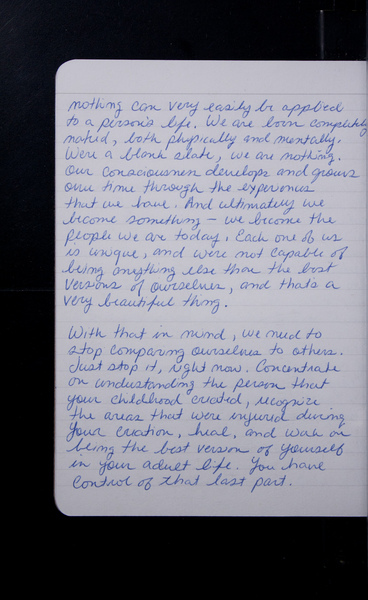 nothing can very easily be applied
to a person's life. We are born completely
naked, both physically and mentally.
We're a blank slate, we are nothing.
Our consciousness develops and grows
over time through the experiences
that we have. And ultimately we
become something – we become the
people we are today. Each one of us
is unique, and we're not capable of
being anything else than the best
versions of ourselves, and that's a
very beautiful thing.
With that in mind, we need to
stop comparing ourselves to others.
Just stop it, right now. Concentrate
on understanding the person that
your childhood created, recognize
the areas that were injured during
your creation, heal, and work on
being the best version of yourself
in your adult life. You have
control of that last part.